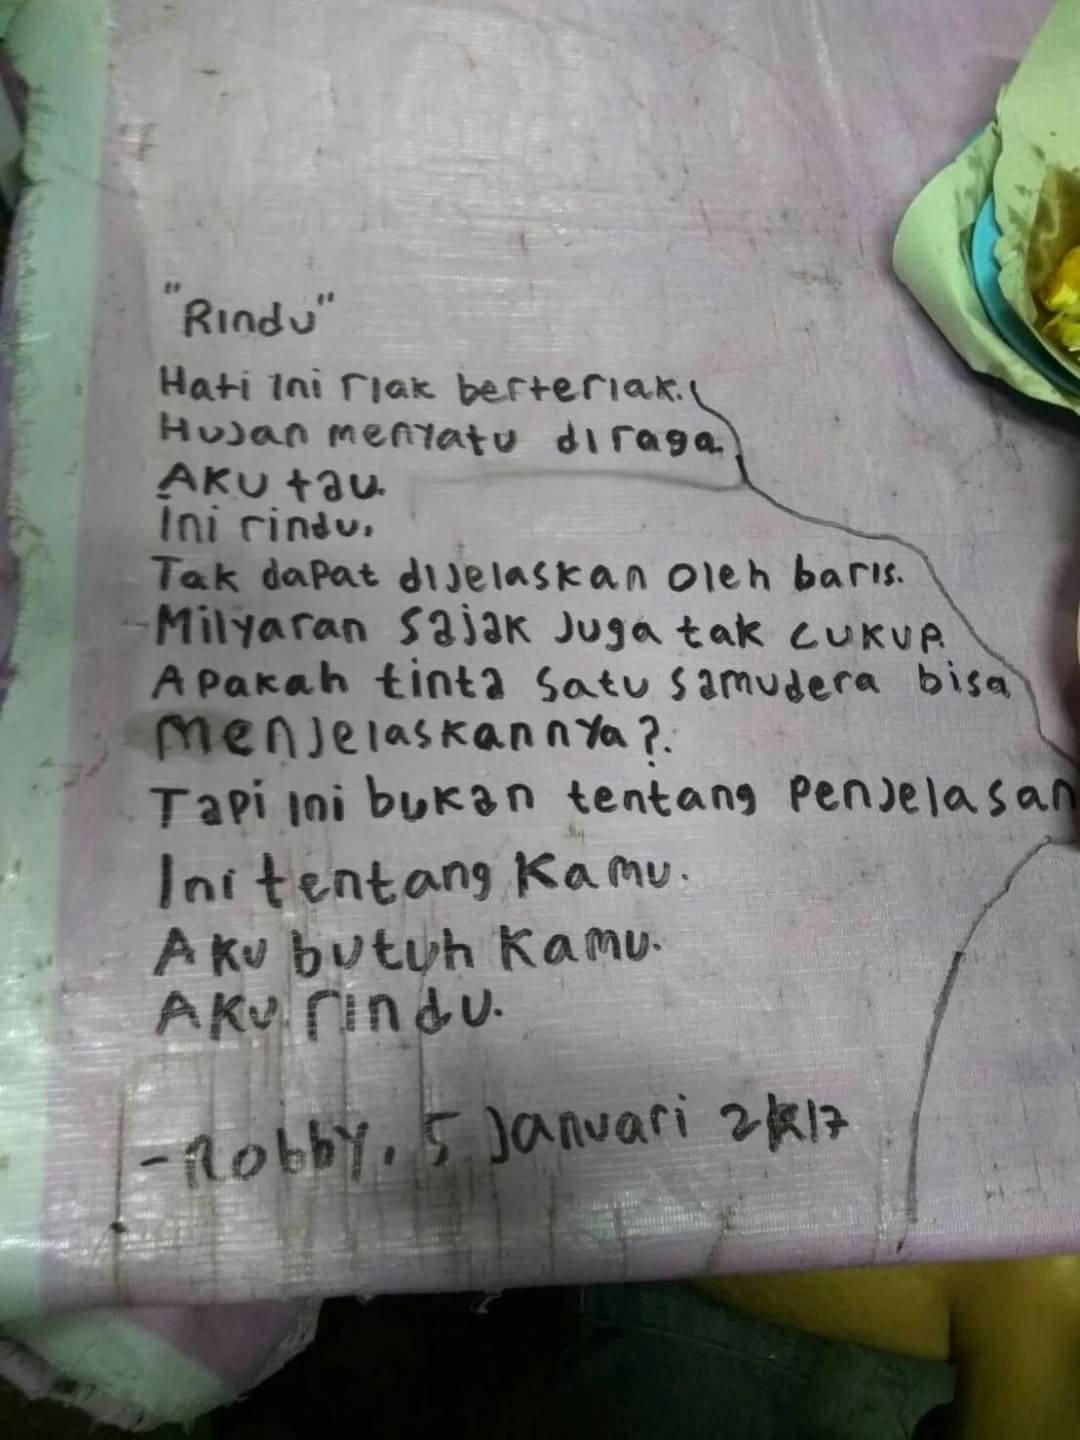 "Rindu"
Hati ini riak berteriak.
Hujan menyatu diraga.
Aku tau.
Ini rindu.
Tak dapat dijelaskan oleh baris.
Milyaran sajak juga tak cukup.
Apakah tinta satu samudera bisa
menjelaskannya?.
Tapi ini bukan tentang penjelasan
Ini tentang kamu.
Aku butuh kamu.
Aku rindu.
-Robby, 5 Januari 2k17